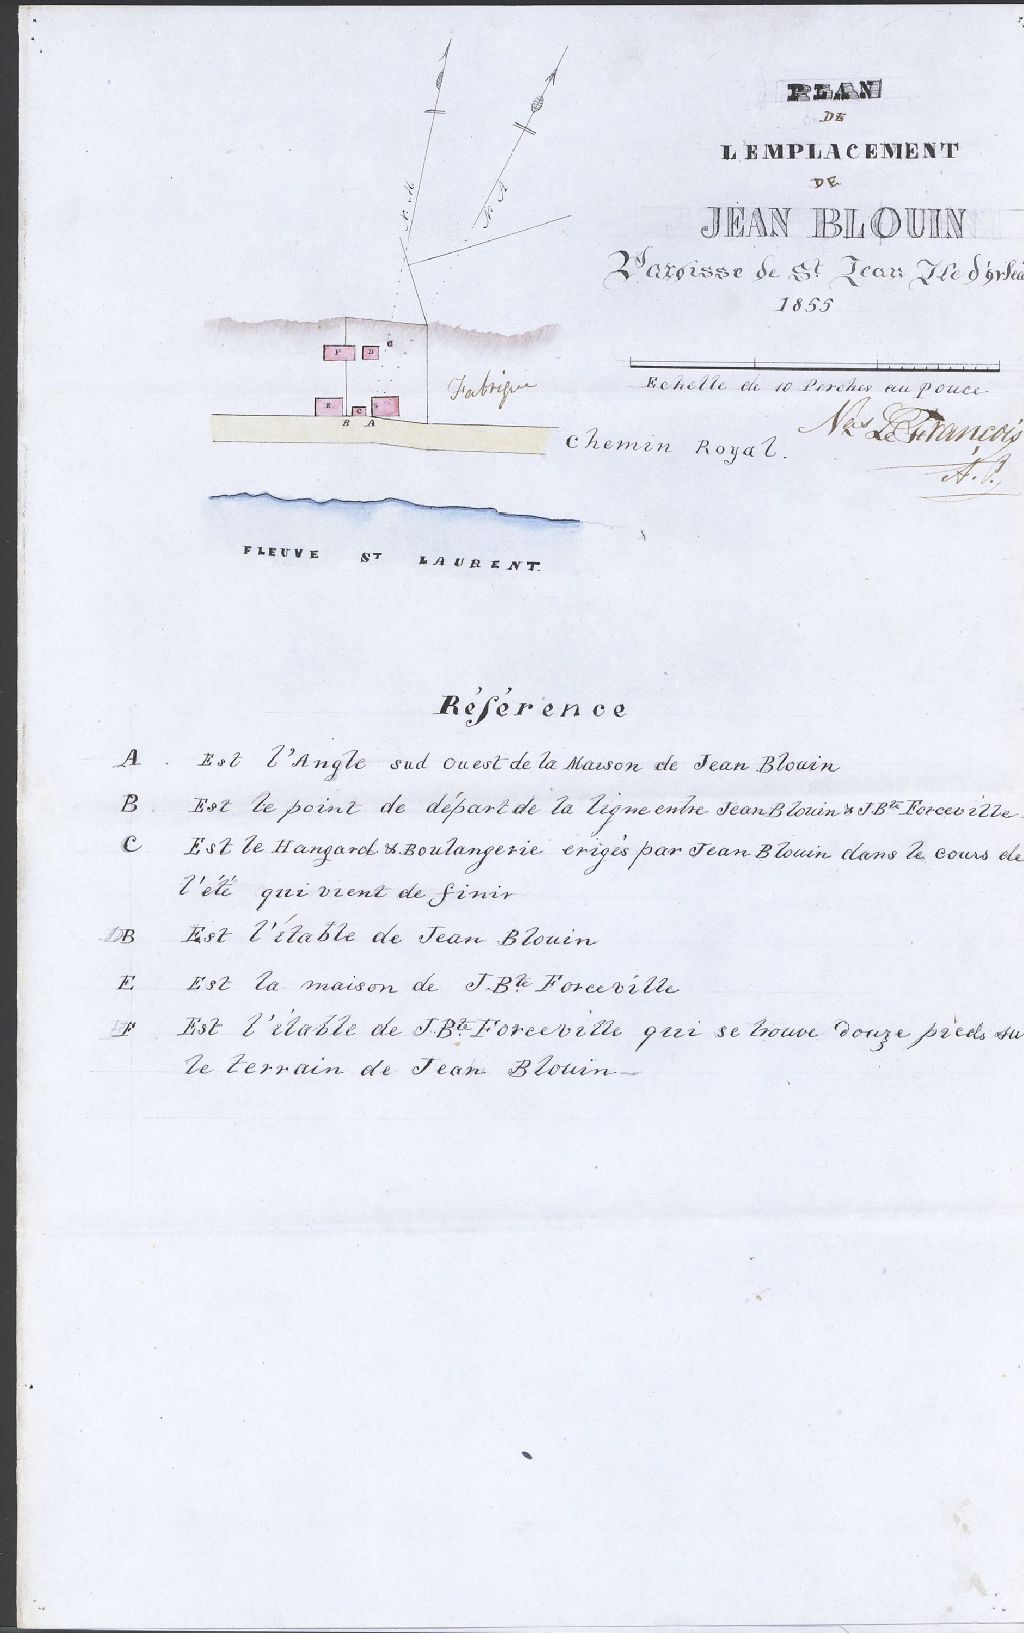 PLAN
DE
L'EMPLACEMENT
DE
JEAN BLOUIN
Paroisse de St Jean Ile d'Orléa
1855
Echelle de 10 Perches au pouce
Nas LeFrançois
A. P.
N. M
N. A
F
D
E
C
B
A
Fabrique
Chemin Royal.
FLEUVE ST LAURENT
Référence
A Est l'Angle sud Ouest de la Maison de Jean Blouin
B Est le point de départ de la ligne entre Jean Blouin & J Bte Forceville
C Est le Hangard & Boulangerie erigés par Jean Blouin dans le cours de
l'été qui vient de finir
B Est l'étable de Jean Blouin
E Est la maison de J. Bte Forceville
F Est l'étable de J. Bte Forceville qui se trouve douze pieds su
le terrain de Jean Blouin